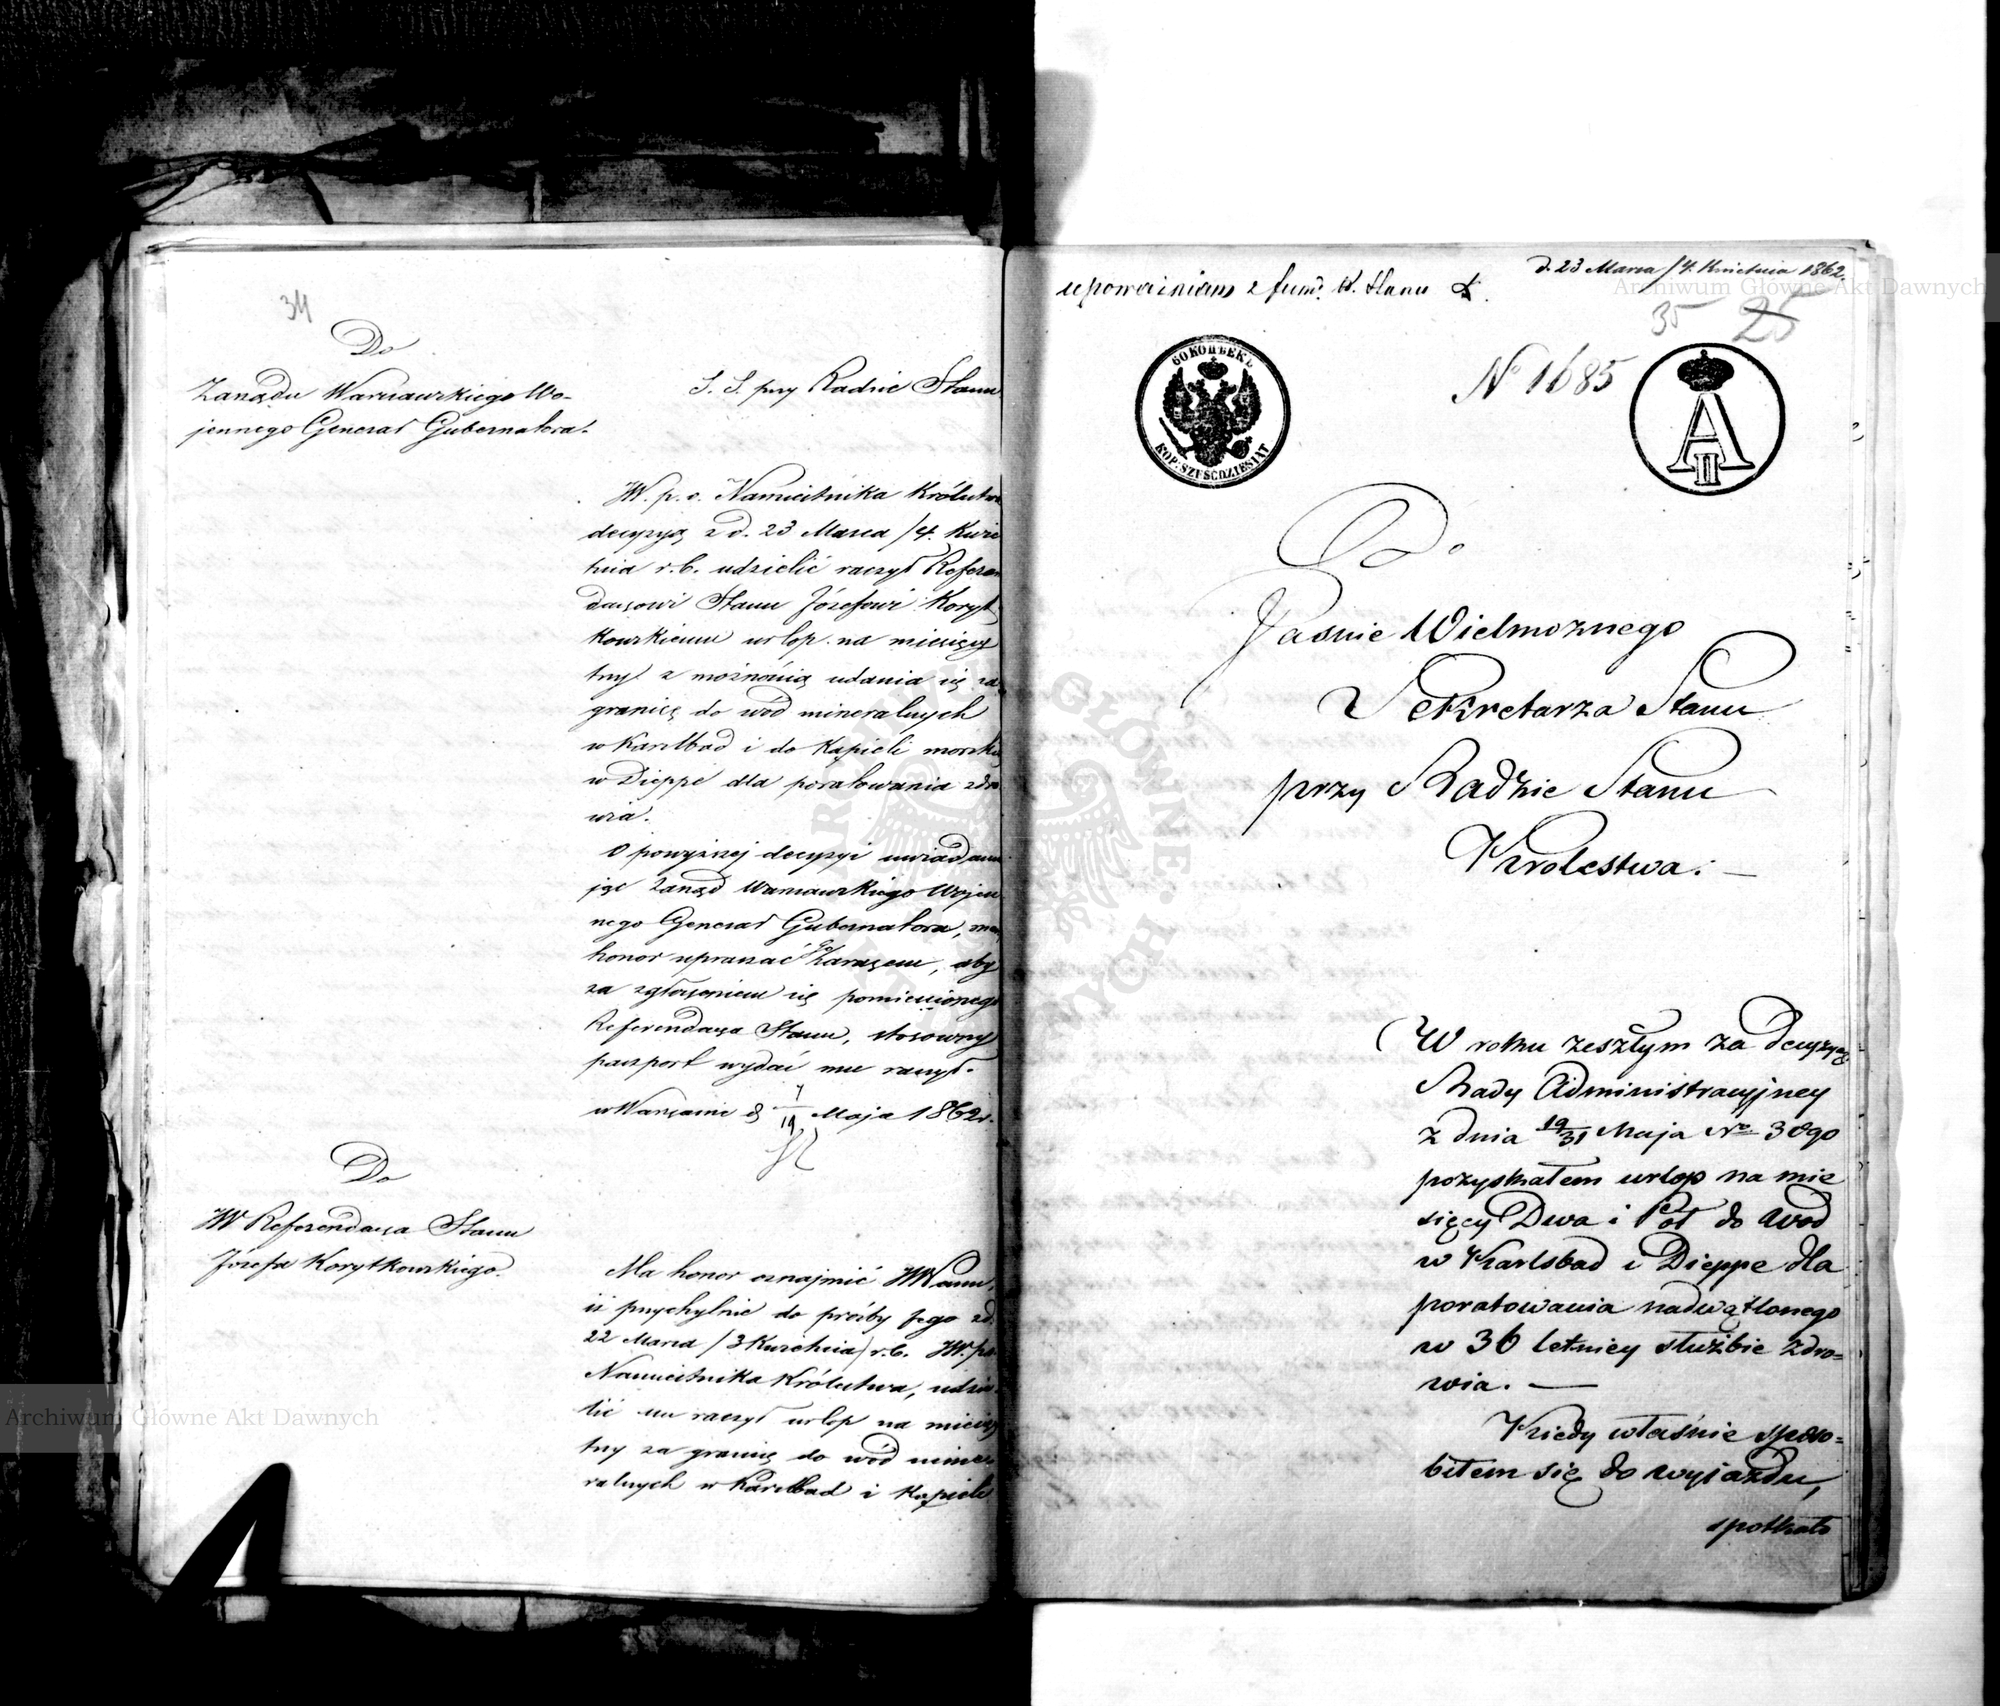 34
Do
Zarządu Warszawskiego Wo-
jennego Generał Gubernatora.
S. S. przy Radzie Stanu
JW. p. o. Namiestnika Królestwa
decyzyą z d. 23 Marca /4. Kwie
tnia r. b. udzielić raczył Referen
darzowi Stanu Józefowi Koryt
kowskiemu urlop na miesięcy
trzy z możnością udania się za
granicę do wód mineralnych
w Karlsbad i do kąpieli morski
w Dieppe dla poratowania zdro
wia.
O powyższej decyzyi uwiadami
jąc Zarząd Warszawskiego Wojen
nego Generał Gubernatora, ma
honor upraszać go zarazem, aby
za zgłoszeniem się pomienionego
Referendarza Stanu, stosowny
paszport wydać mu raczył.
w Warszawie d 7/19 Maja 1862 r.
Do
JW Referendarza Stanu
Józefa Korytkowskiego.
Ma honor oznajmić JWPanu,
iż przychylnie do prośby Jego z d.
22 Marca /3 Kwietnia/ r. b. JW. p.o.
Namiestnika Królestwa, udzie
lić mu raczył urlop na miesięcy
trzy za granicę do wód mine
ralnych w Karlsbad i kąpieli
d. 23 Marca /4. Kwietnia 1862.
upoważniam z fund. K. Stanu
35 25
60 КОПѢЕКЪ
KOP: SZEŚĆDZIESIĄT
No 1685
A II
Do
Jasnie Wielmoznego
Sekretarza Stanu
przy Radzie Stanu
Krolestwa. —
W roku zeszłym za Decyzyą
Rady Administracyjney
z dnia 19/31 Maja No 38go
pozyskałem urlop na mie
sięcy Dwa i Pół do Wod
w Karlsbad i Dieppe dla
poratowania nadwątlonego
w 36 letniey służbie zdro=
wia. —
Kiedy właśnie sposo=
biłem się do wyjazdu,
spotkało
ARCHIWUM GŁÓWNE AKT DAWNYCH
Archiwum Główne Akt Dawnych
Archiwum Główne Akt Dawnych